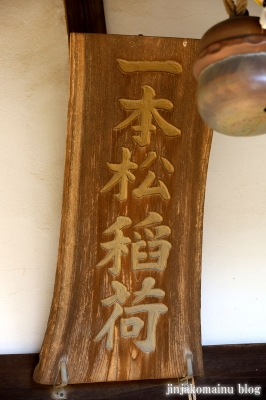 一本松稲荷
jinjakomainu blog